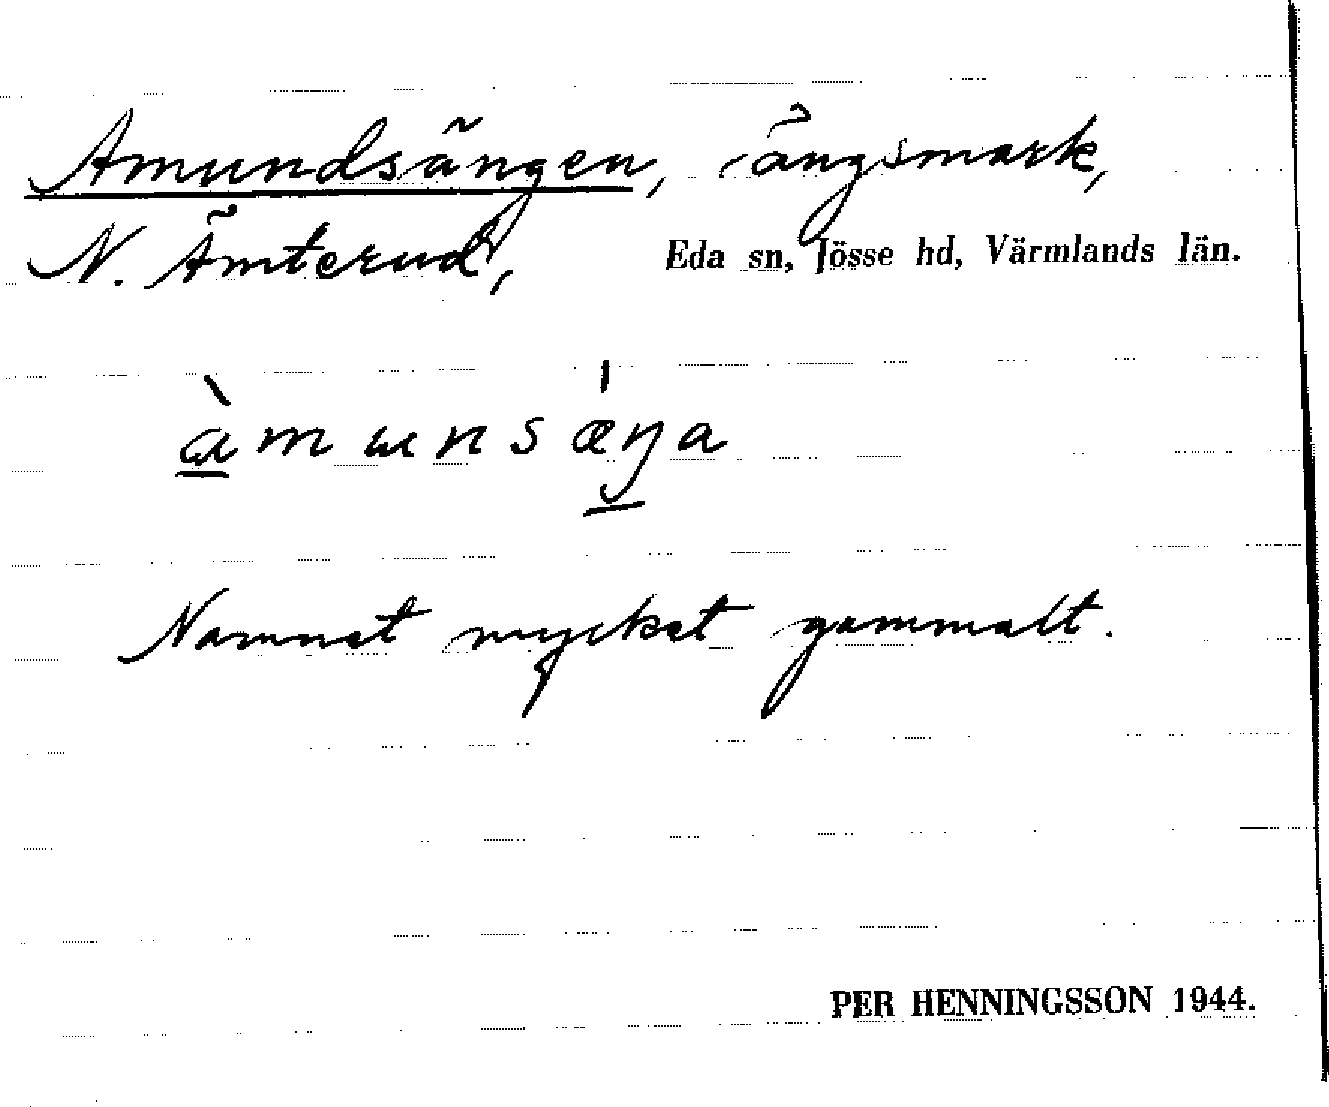 Amundsängen, ängsmark,
N. Ämterud, Eda sn, Jösse hd, Värmlands län.
àmunsæ´ŋa
Namnet mycket gammalt.
PER HENNINGSSON 1944.